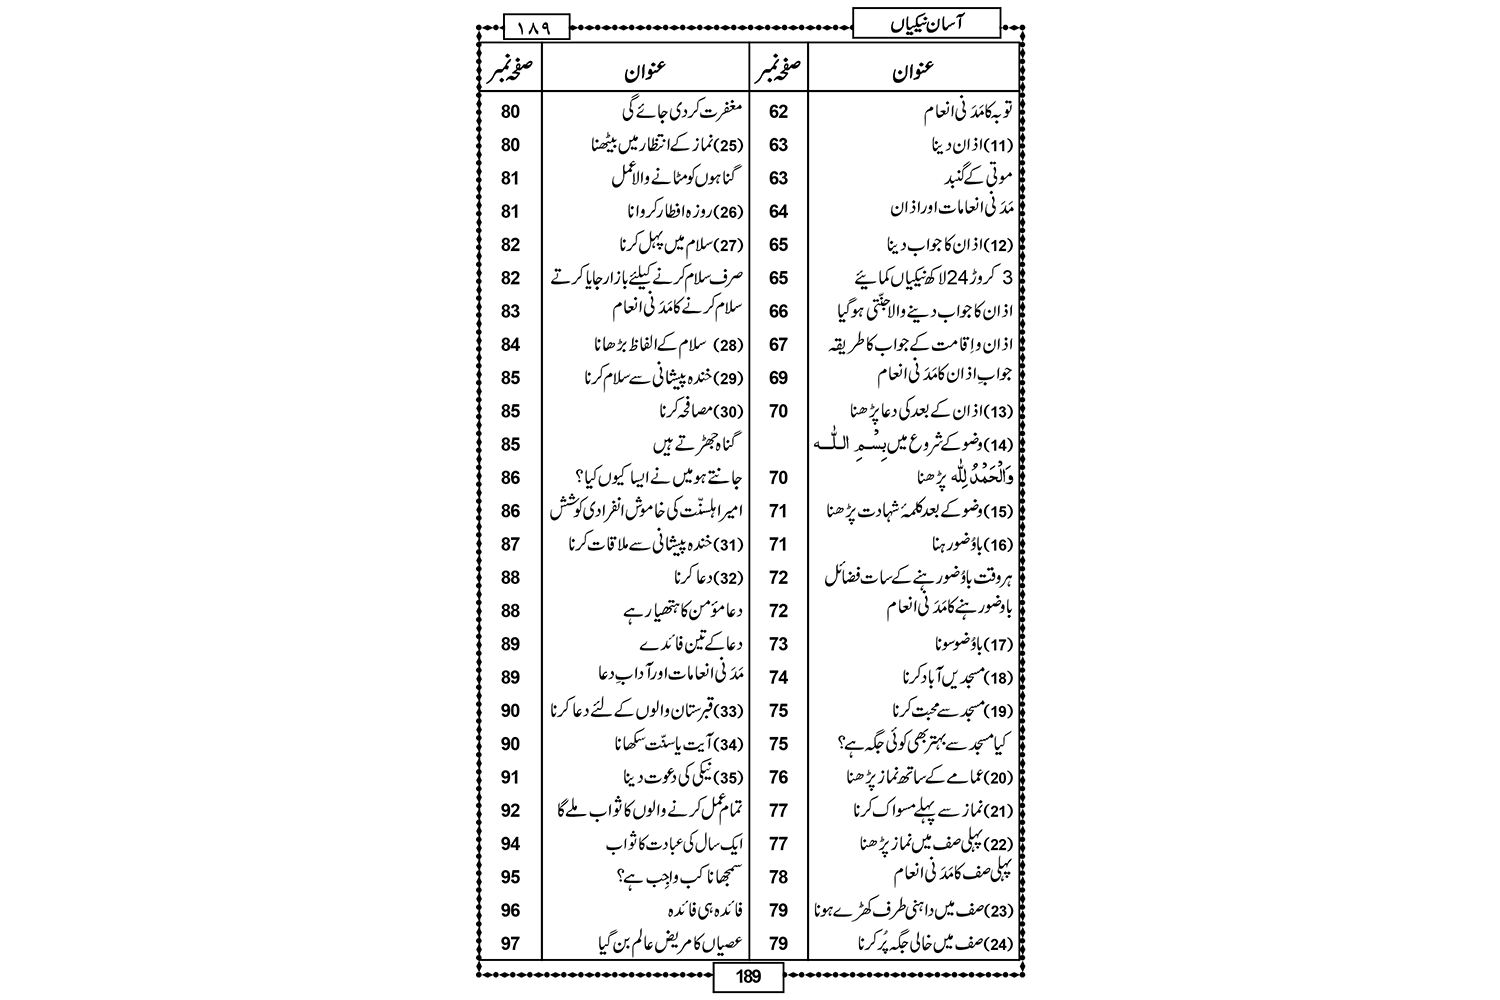 آسان نیکیاں
۱۸۹
عنوان صفحہ نمبر
توبہ کا مَدَنی انعام 62
(11) اذان دینا 63
موتی کے گنبد 63
مَدَنی انعامات اور اذان 64
(12) اذان کا جواب دینا 65
3 کروڑ 24 لاکھ نیکیاں کمائیے 65
اذان کا جواب دینے والا جنّتی ہو گیا 66
اذان و اِقامت کے جواب کا طریقہ 67
جوابِ اذان کا مَدَنی انعام 69
(13) اذان کے بعد کی دعا پڑھنا 70
(14) وضو کے شروع میں بِسْمِ اللّٰه
وَالْحَمْدُ لِلّٰه پڑھنا 70
(15) وضو کے بعد کلمۂ شہادت پڑھنا 71
(16) باوُضو رہنا 71
ہر وقت باوُضو رہنے کے سات فضائل 72
باوضو رہنے کا مَدَنی انعام 72
(17) باوُضو سونا 73
(18) مسجدیں آباد کرنا 74
(19) مسجد سے محبت کرنا 75
کیا مسجد سے بہتر بھی کوئی جگہ ہے؟ 75
(20) عمامے کے ساتھ نماز پڑھنا 76
(21) نماز سے پہلے مسواک کرنا 77
(22) پہلی صف میں نماز پڑھنا 77
پہلی صف کا مَدَنی انعام 78
(23) صف میں داہنی طرف کھڑے ہونا 79
(24) صف میں خالی جگہ پُر کرنا 79
عنوان صفحہ نمبر
مغفرت کر دی جائے گی 80
(25) نماز کے انتظار میں بیٹھنا 80
گناہوں کو مٹانے والا عمل 81
(26) روزہ افطار کروانا 81
(27) سلام میں پہل کرنا 82
صرف سلام کرنے کیلئے بازار جایا کرتے 82
سلام کرنے کا مَدَنی انعام 83
(28) سلام کے الفاظ بڑھانا 84
(29) خندہ پیشانی سے سلام کرنا 85
(30) مصافحہ کرنا 85
گناہ جھڑتے ہیں 85
جانتے ہو میں نے ایسا کیوں کیا؟ 86
امیر اہلسنّت کی خاموش انفرادی کوشش 86
(31) خندہ پیشانی سے ملاقات کرنا 87
(32) دعا کرنا 88
دعا مؤمن کا ہتھیار ہے 88
دعا کے تین فائدے 89
مَدَنی انعامات اور آدابِ دعا 89
(33) قبرستان والوں کے لئے دعا کرنا 90
(34) آیت یا سنّت سکھانا 90
(35) نیکی کی دعوت دینا 91
تمام عمل کرنے والوں کا ثواب ملے گا 92
ایک سال کی عبادت کا ثواب 94
سمجھانا کب واجِب ہے؟ 95
فائدہ ہی فائدہ 96
عصیاں کا مریض عالم بن گیا 97
189